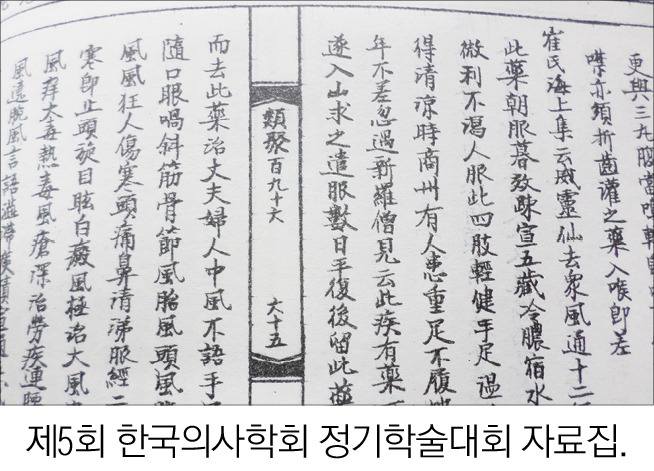 更與三九腹當
噤亦須折齒灌之藥入喉即差
崔氏海上集云威靈仙去衆風通十二
此藥朝服暮效疎宣五藏冷膿宿水
微利不瀉人服此四肢輕健手足溫
得清凉時商州有人患重足不履地
年不差忽遇新羅僧見云此疾有藥
遂入山求之遣服數日平復後留此藥
類聚百九十六
六十五
而去此藥治丈夫婦人中風不語手
隨口眼喎斜筋骨節風胎風頭風
風風狂人傷寒頭痛鼻清涕服經二
寒即止頭旋目眩白癜風極治大風
風痺大毒熱毒風瘡深治勞疾連腰
風遶腕風言語澁滯痰積宣通
제5회 한국의사학회 정기학술대회 자료집.